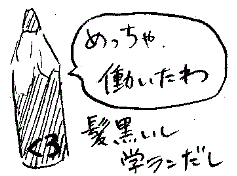 めっちゃ、
働いたわ
髪黒いし
学ランだし
<3